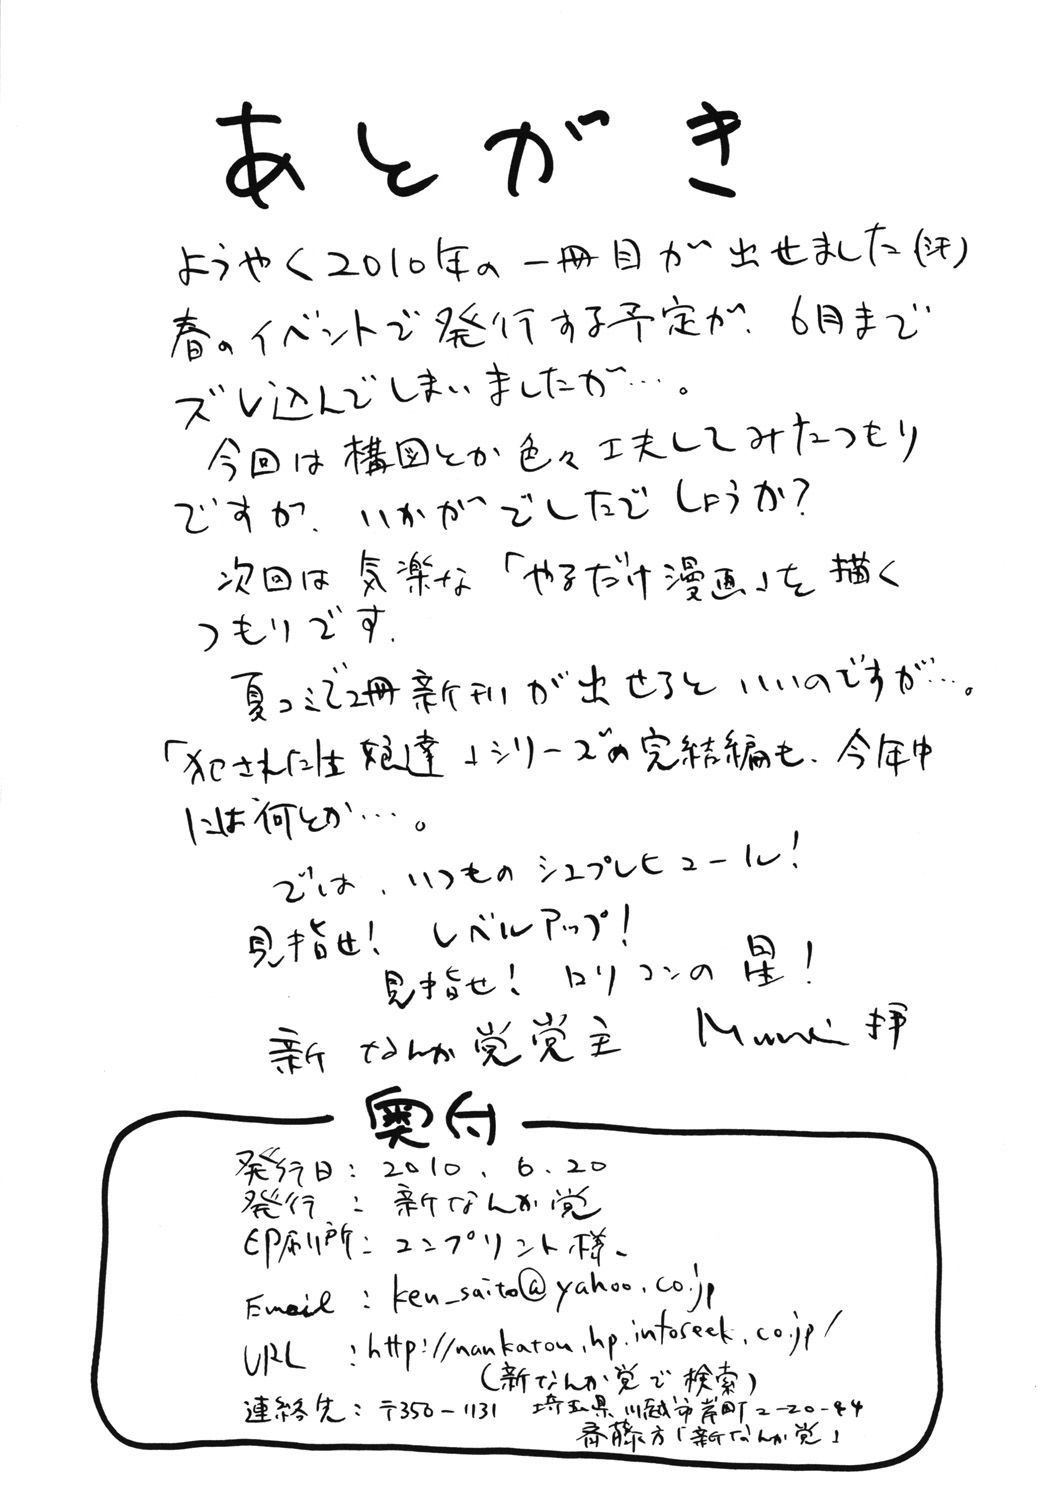 あとがき
ようやく2010年の一冊目が出せました(汗)
春のイベントで発行する予定が、6月まで
ズレ込んでしまいましたが…。
今回は構図とか色々工夫してみたつもり
ですが、いかがでしたでしょうか?
次回は気楽な「やるだけ漫画」を描く
つもりです。
夏コミで2冊新刊が出せるといいのですが…。
「犯された生娘達」シリーズの完結編も、今年中
には何とか…。
では、いつものシュプレヒコール!
見指せ! レベルアップ!
見指せ! ロリコンの星!
新なんか党党主 Muney拝
奥付
発行日: 2010.6.20
発行 : 新なんか党
印刷所: コンプリント様
Email : ken_saito@yahoo.co.jp
URL : http://nankatou.hp.infoseek.co.jp/
(新なんか党で検索)
連絡先: 〒350-1131 埼玉県川越市岸町2-20-44
斎藤方「新なんか党」